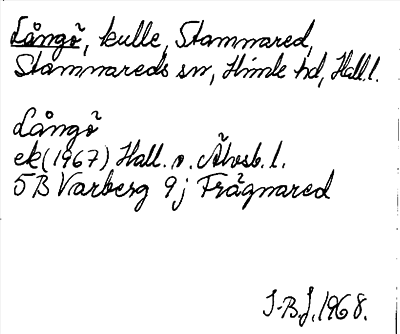 Långö, kulle, Stamnared,
Stamnareds sn, Himle hd, Hall. l.
Långö
ek (1967) Hall. o. Älvsb. l.
5B Varberg 9j Frägnared
I-B.J. 1968.